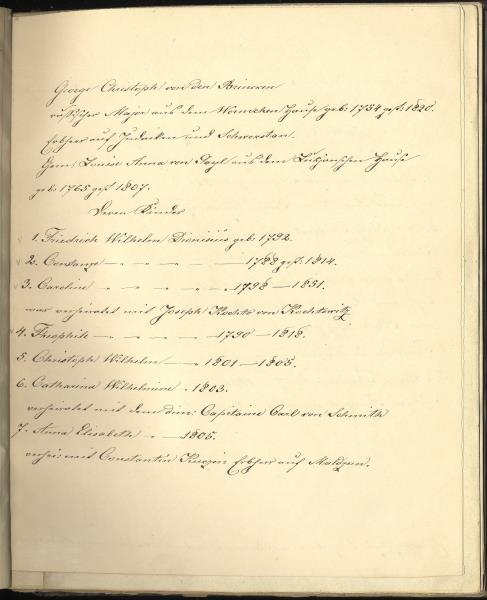 George Christoph von den Brincken
russischer Major aus dem Wormschen Hause geb: 1754 gest: 1820.
Erbherr auf Judeiken und Schwerstan.
Gem: Louise Anna von aus dem Hause
geb: 1765 gest 1807.
Deren Kinder
1. Friedrich Wilhelm Dionisius geb: 1792.
2. Constanze — " — " — " — 1788 gest: 1814.
3. Caroline — " — " — " — 1798 — 1851.
war verheiratet mit Joseph von
4. Theophile — " — " — 1790 — 1818.
5. Christoph Wilhelm — 1801 — 1805.
6. Catharina Wilhelmine " 1803.
verheiratet mit dem dim: Capitaine Carl von Schmith
7. Anna Elisabeth " — 1805.
verhei: mit Constantin Erbherr auf